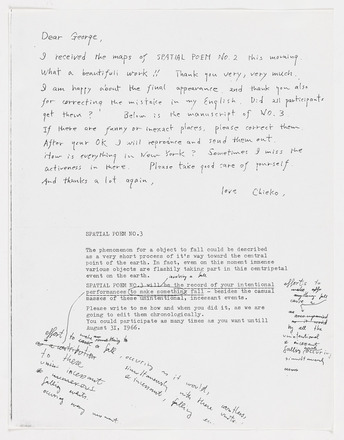 Dear George,
I received the maps of SPATIAL POEM NO. 2 this morning.
What a beautifull work!! Thank you very, very much.
I am happy about the final appearance and thank you also
for correcting the mistake in my English. Did all participants
get them? Below is the manuscript of NO. 3
If there are funny or inexact places, please correct them.
After your OK I will reproduce and send them out
How is everything in New York? Sometimes I miss the
activeness in there. Please take good care of yourself
And thanks a lot again,
love Chieko.
SPATIAL POEM NO.3
The phenomenon for a object to fall could be described
as a very short process of it's way toward the central
point of the earth. In fact, even on this moment immense
various objects are flashily taking part in this centripetal
event on the earth.
SPATIAL POEM NO.3 will be the record of your intentional
performances to make something fall – besides the casual
masses of these unintentional, incessant events.
Please write to me how and when you did it, as we are
going to edit them chronologically.
You could participate as many times as you want until
August 31, 1966.
effort to
cause a fall
to these
incessant
numerous
falling
occuring every moment
occuring
simultaneously with these
incessant, falling
efforts to
anything fall
cause
by all the
unintentional
incessant
falling
simultaneously